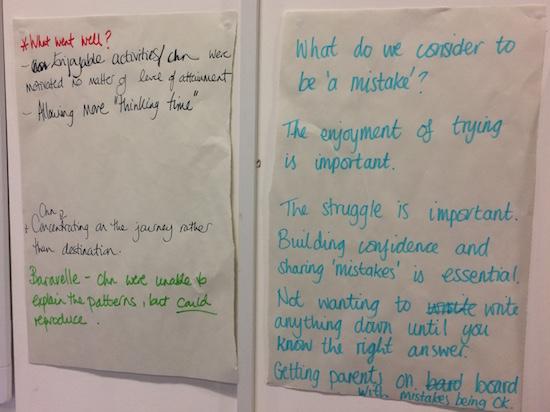 * What went well?
- Enjoyable activities / chn were
motivated no matter of level of attainment
- Allowing more "thinking time"
Chn
* Concentrating on the journey rather
than destination.
Baravelle - chn were unable to
explain the patterns, but could
reproduce.
What do we consider to
be 'a mistake'?
The enjoyment of trying
is important.
The struggle is important.
Building confidence and
sharing 'mistakes' is essential.
Not wanting to write
anything down until you
know the right answer.
Getting parents on board
with mistakes being OK.